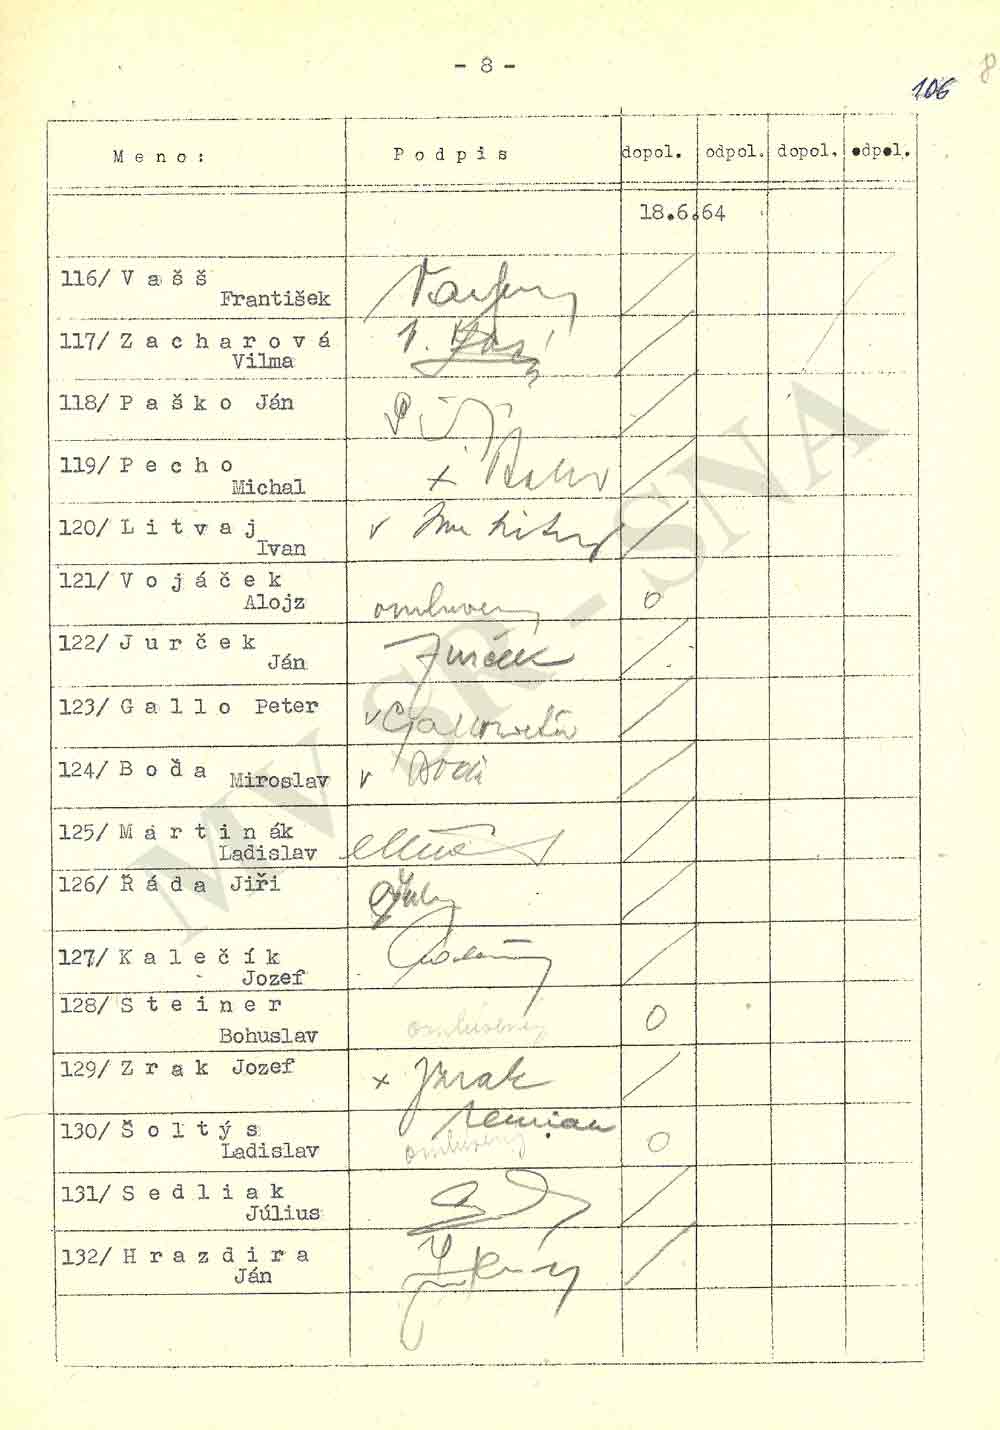 - 8 -
8
106
M e n o :
P o d p i s
dopol.
odpol.
dopol.
odpol.
18.6.64
116/ V a š š
František
117/ Z a c h a r o v á
Vilma
118/ P a š k o Ján
119/ P e c h o
Michal
120/ L i t v a j
Ivan
121/ V o j á č e k
Alojz
omluveny
O
122/ J u r č e k
Ján
Jurček
123/ G a l l o Peter
v
124/ B o ď a
Miroslav
v
125/ M a r t i n á k
Ladislav
126/ Ř á d a Jiří
127/ K a l e č í k
Jozef
128/ S t e i n e r
Bohuslav
omluveny
O
129/ Z r a k Jozef
x Zrak
130/ Š o l t ý s
Ladislav
omluveny
O
131/ S e d l i a k
Július
132/ H r a z d i r a
Ján
MV SR - SNA